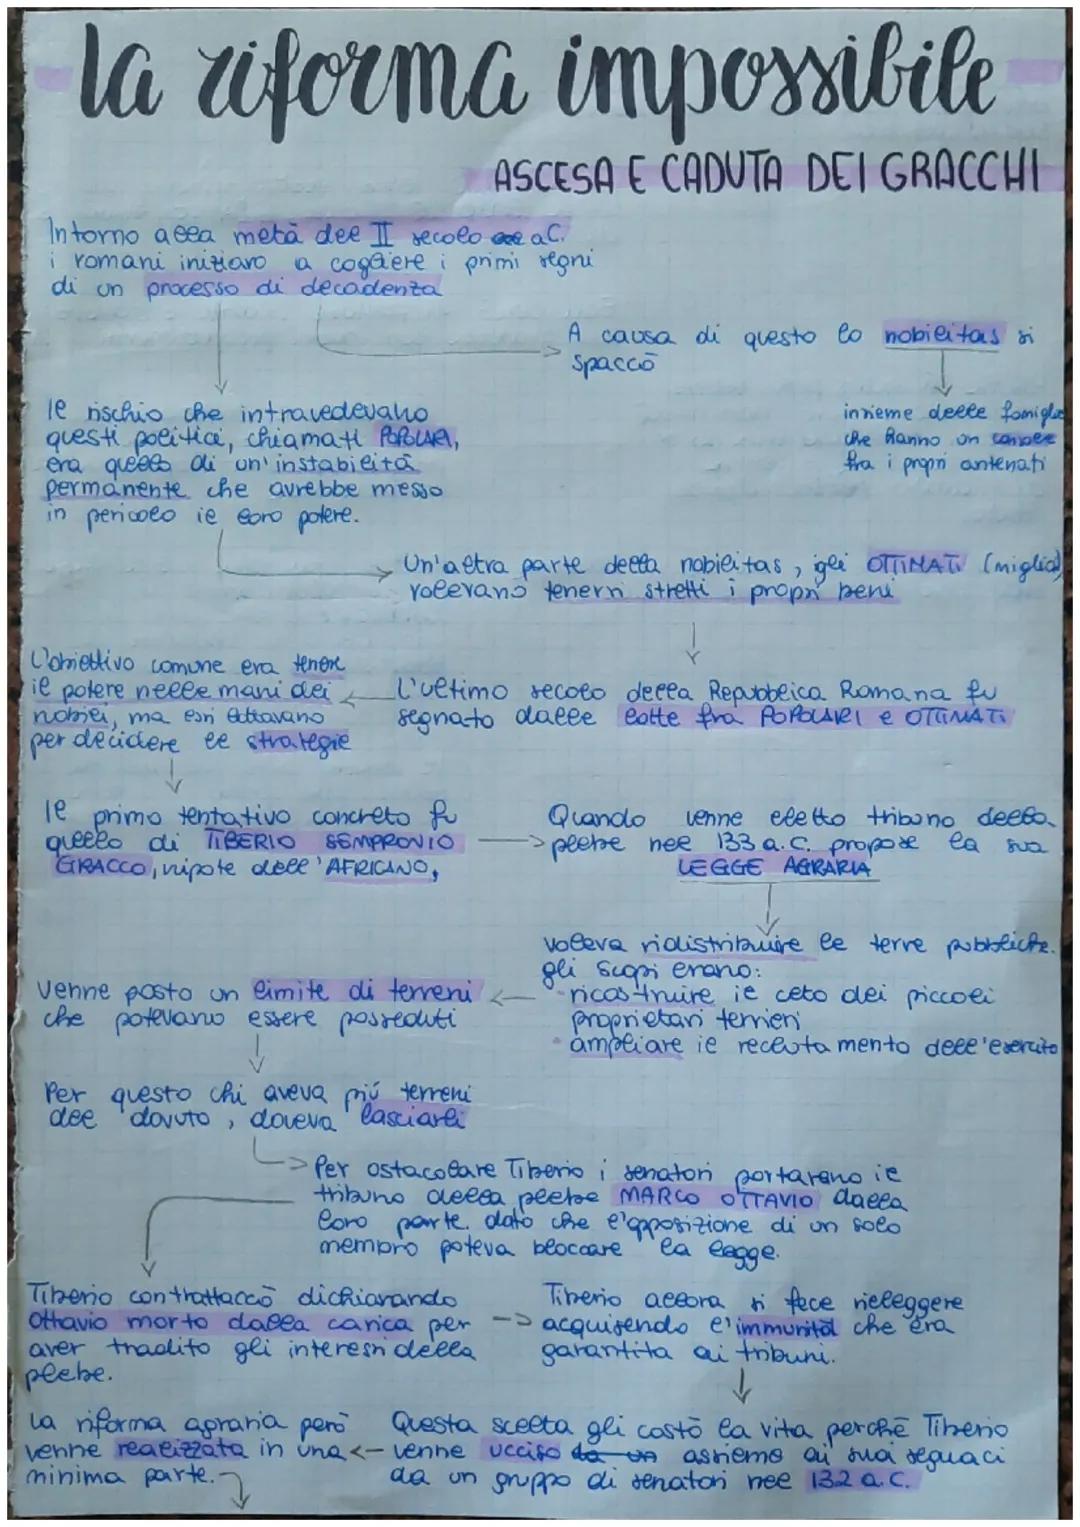 la riforma impossibile
ASCESA E CADUTA DEI GRACCHI
Intorno alla metà del II secolo a.C.
i romani iniziaro a cogliere i primi segni
di un processo di decadenza
A causa di questo lo nobilitas si
spaccò
insieme delle famiglie
che hanno un console
fra i propri antenati
Il rischio che intravedevano
questi politici, chiamati POPOLARI,
era quello di un'instabilità
permanente che avrebbe messo
in pericolo il loro potere.
Un'altra parte della nobilitas, gli OTTIMATI (miglio)
volevano tenersi stretti i propri beni
L'ultimo secolo della Repubblica Romana fu
segnato dalle lotte fra POPOLARI e OTTIMATI
L'obiettivo comune era tenere
il potere nelle mani dei
nobili, ma essi lottavano
per decidere le strategie
Il primo tentativo concreto fu
quello di TIBERIO SEMPRONIO
GRACCO, nipote dell'AFRICANO,
Quando venne eletto tribuno della
plebe nel 133 a.C. propose la sua
LEGGE AGRARIA
voleva ridistribuire le terre pubbliche.
gli scopi erano:
- ricostruire il ceto dei piccoli
proprietari terrieri
• ampliare il reclutamento dell'esercito
Venne posto un limite di terreni
che potevano essere posseduti
Per questo chi aveva più terreni
del dovuto, doveva lasciarli
Per ostacolare Tiberio i senatori portarono il
tribuno della plebe MARCO OTTAVIO dalla
loro parte. dato che l'opposizione di un solo
membro poteva bloccare la legge.
Tiberio contrattaccò dichiarando
Ottavio morto dalla carica per
aver tradito gli interessi della
plebe.
Tiberio allora si fece rieleggere
acquisendo l'immunità che era
garantita ai tribuni.
Questa scelta gli costò la vita perchè Tiberio
venne ucciso da un assieme ai suoi seguaci
da un gruppo di senatori nel 132 a.C.
La riforma agraria però
venne realizzata in una
minima parte.